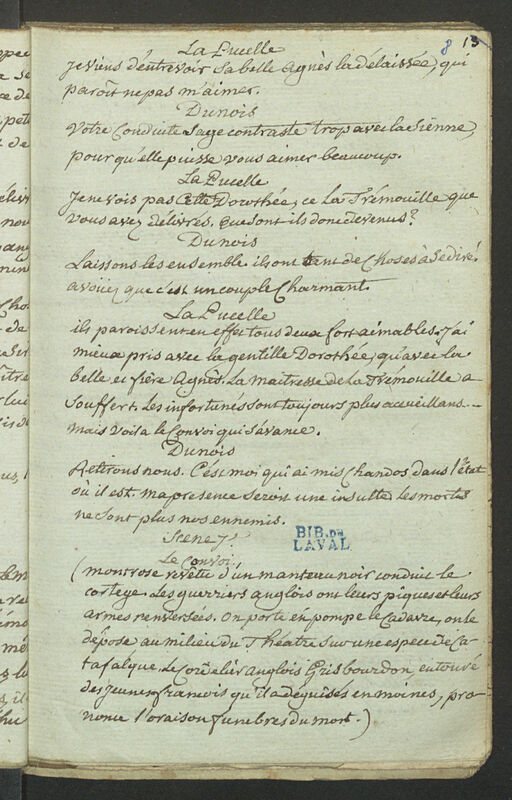 8 15
La Pucelle
je viens d'entrevoir la belle Agnès la délaissée, qui
paroît ne pas m'aimer.
Dunois
Votre Conduite Sage contraste trop avec la sienne,
pour qu'elle puisse vous aimer beaucoup.
La Pucelle
Je ne vois pas Cette Dorothée, ce La Trémouille que
vous avez délivrés. Que sont ils donc devenus?
Dunois
Laissons les ensemble. ils ont tant de choses à se dire.
avoüez que c'est un couple Charmant.
La Pucelle
ils paroissent en effet tous deux fort aimables. j'ai
mieux pris avec la gentille Dorothée, qu'avec la
belle et fière Agnès. La maitresse de la Trémouille a
Souffert. les infortunés sont toujours plus accueillans ...
Mais voila le Convoi qui s'avance.
Dunois
Retirons nous. C'est moi qui ai mis Chandos dans l'état
où il est. ma presence seroit une insulte. les morts
ne sont plus nos ennemis.
Scene 7e
BIB. DE
LAVAL
Le Convoi
(montrose revêtu d'un manteau noir conduit le
cortege. Les guerriers anglois ont leurs piques et leurs
armes renversées. On porte en pompe le Cadavre, on le
dépose au milieu du Théatre sur une espece de Ca-
tafalque. Le Cordelier anglois Grisbourdon, entouré
de jeunes francois qu'il a déguisés en moines, pro-
nonce l'oraison funebre du mort.)